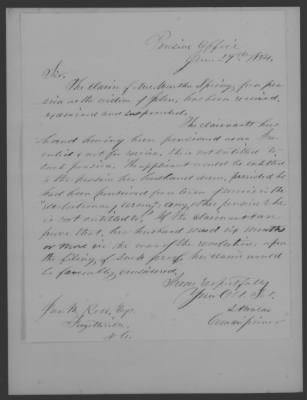 Pension Office
June 29th
Sir.
The claim of Mrs Martha Spring, for a pen
sion as the widow of John, has been received,
examined and suspended.
The claimant's hus
band having been pensioned as an
she is not entitled to
such pension. The applicant would be entitled
to the pension her husband drew, provided he
had been pensioned for a term of service in the
"Revolutionary army", any other pension she
is not entitled to. If the claimant can
prove that her husband served six months
or more in the war of the revolution, upon
the filing of such proofs, her claim would
be favorably considered.
Very respectfully
Your Obt. Svt.
Commissioner
Jas. M. Rose, Esq.
Fayetteville
N. C.